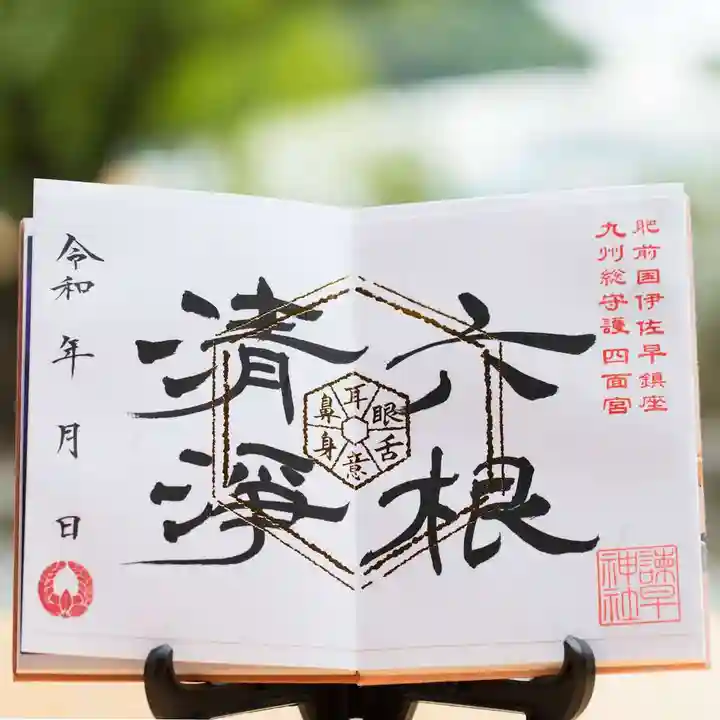 肥前国伊佐早鎮座
九州総守護四面宮
六根
清浄
眼
耳
鼻
舌
身
意
諫早
神社
令和 年 月 日